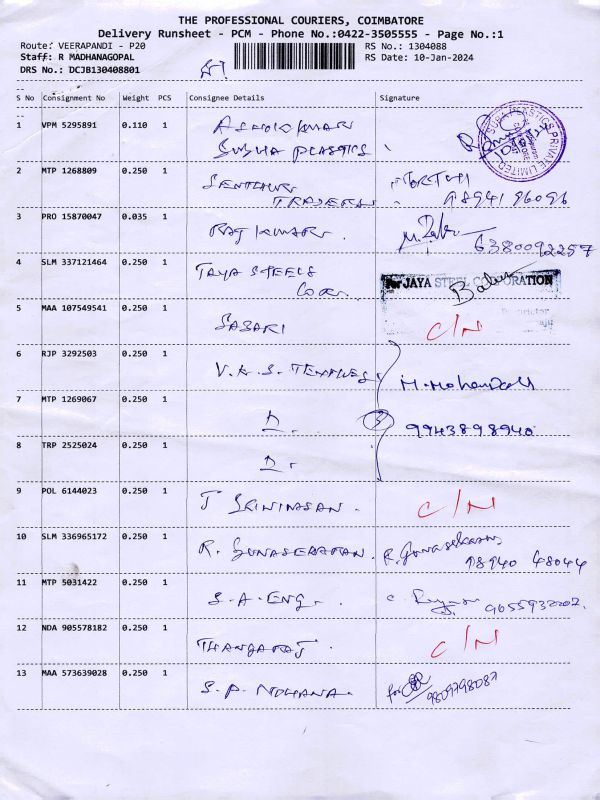 THE PROFESSIONAL COURIERS, COIMBATORE
Delivery Runsheet - PCM - Phone No.:0422-3505555 - Page No.:1
Route: VEERAPANDI - P20
RS No.: 1304088
Staff: R MADHANAGOPAL
RS Date: 10-Jan-2024
DRS No.: DCJB130408801
S No Consignment No Weight PCS Consignee Details Signature
1 VPM 5295891 0.110 1 ASHOK KUMAR
SUBHA PLASTICS
SUBHA PLASTICS PRIVATE LIMITED
2 MTP 1268809 0.250 1 SENTHUR
TRADERS
98941 96096
3 PRO 15870047 0.035 1 RAJ KUMAR.
6380092257
4 SLM 337121464 0.250 1 JAYA STEELS
For JAYA STEEL CORPORATION
Babu
Proprietor
5 MAA 107549541 0.250 1 SASARI
C/N
6 RJP 3292503 0.250 1 V.K.S. TEXTILES
M. Mohandass
7 MTP 1269067 0.250 1 D.
3
9943898940
8 TRP 2525024 0.250 1 D.
9 POL 6144023 0.250 1 J SRINIVASAN.
C/N
10 SLM 336965172 0.250 1 R. GUNASEKARAN.
R. Gunasekaran
98940 48044
11 MTP 5031422 0.250 1 S.A. ENG.
9655932202.
12 NDA 905578182 0.250 1 THANGARAJ.
C/N
13 MAA 573639028 0.250 1 S.P. MOHANA.
for
9809798087